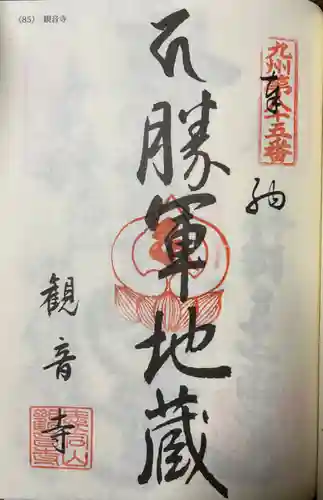 (85) 観音寺
九州第八十五番
奉
納
勝軍地蔵
観音寺